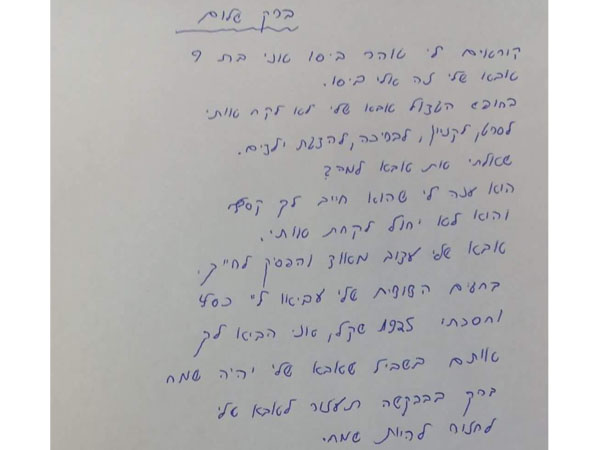 ברק שלום
קוראים לי טוהר ביסו אני בת 9
אבא שלי זה אלי ביסו.
בחופש הגדול אבא שלי לא לקח אותי
לסרט, לקניון, לבריכה, להצגת ילדים.
שאלתי את אבא למה?
הוא ענה לי שהוא חייב לך קסף
והוא לא יחול לקחת אותי.
אבא שלי עצוב מאוד והפסיק לחייך.
בחגים השופית שלי עביאו לי כסף
וחסכתי 1925 שקל, אני הביא לך
אותם בשביל שאבא שלי יהיה שמח
ברק בבקשה תעזור לאבא שלי
לחזור להיות שמח.